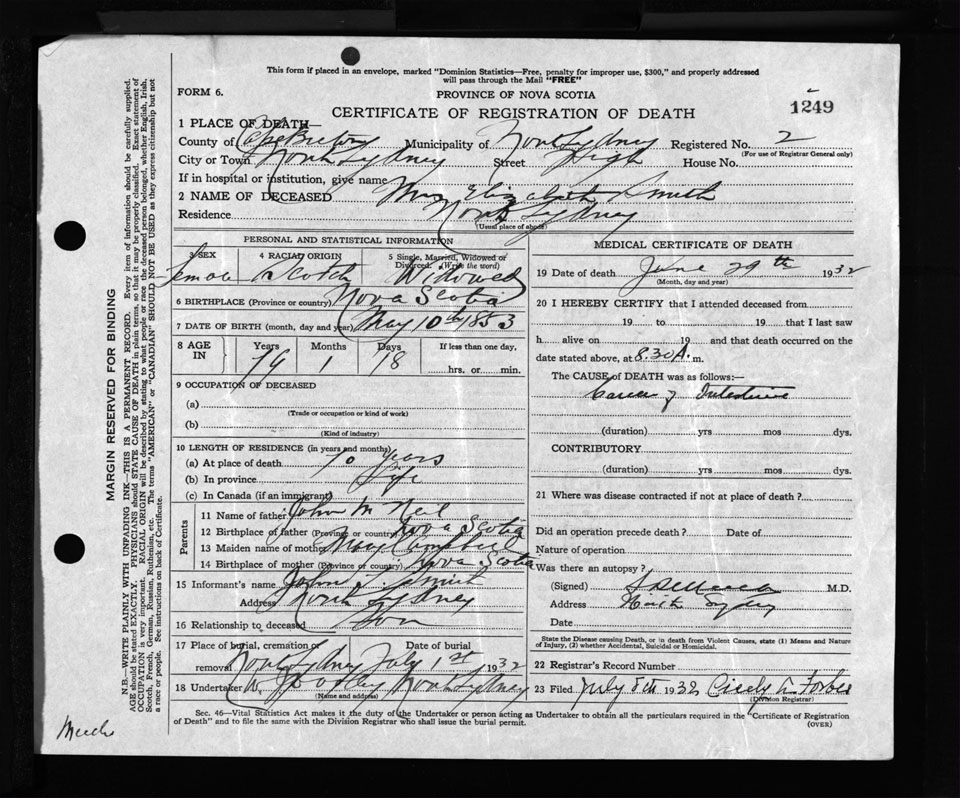 This form if placed in an envelope, marked "Dominion Statistics—Free, penalty for improper use, $300," and properly addressed
will pass through the Mail "FREE"
FORM 6.
PROVINCE OF NOVA SCOTIA
CERTIFICATE OF REGISTRATION OF DEATH
1249
1 PLACE OF DEATH—
County of Cape Breton Municipality of North Sydney Registered No. 2
(For use of Registrar General only)
City or Town North Sydney Street High House No.
If in hospital or institution, give name
2 NAME OF DECEASED Mrs Elizabeth Smith
Residence North Sydney
(Usual place of abode)
PERSONAL AND STATISTICAL INFORMATION
3 SEX 4 RACIAL ORIGIN 5 Single, Married, Widowed or
Divorced. (Write the word)
Female Scotch Widowed
6 BIRTHPLACE (Province or country) Nova Scotia
7 DATE OF BIRTH (month, day and year) May 10th 1853
8 AGE IN Years Months Days If less than one day,
79 1 18 hrs. or min.
9 OCCUPATION OF DECEASED
(a)
(Trade or occupation or kind of work)
(b)
(Kind of industry)
10 LENGTH OF RESIDENCE (in years and months)
(a) At place of death 70 years
(b) In province Life
(c) In Canada (if an immigrant)
Parents
11 Name of father John McNeil
12 Birthplace of father (Province or country) Nova Scotia
13 Maiden name of mother Mary Campbell
14 Birthplace of mother (Province or country) Nova Scotia
15 Informant's name John Smith
Address North Sydney
16 Relationship to deceased Son
17 Place of burial, cremation or Date of burial
removal North Sydney July 1st 1932
18 Undertaker North Sydney
(Name and address)
MEDICAL CERTIFICATE OF DEATH
19 Date of death June 29th 1932
(Month, day and year)
20 I HEREBY CERTIFY that I attended deceased from
19 to 19 that I last saw
h alive on 19 and that death occurred on the
date stated above, at 8.30 A. m.
The CAUSE of DEATH was as follows:—
Cancer of Intestine
(duration) yrs mos dys.
CONTRIBUTORY
(duration) yrs mos dys.
21 Where was disease contracted if not at place of death?
Did an operation precede death? Date of
Nature of operation
Was there an autopsy?
(Signed) M.D.
Address North Sydney
Date
State the Disease causing Death, or in death from Violent Causes, state (1) Means and Nature
of Injury, (2) whether Accidental, Suicidal or Homicidal.
22 Registrar's Record Number
23 Filed July 8th 1932 Forbes
(Division Registrar)
Sec. 46—Vital Statistics Act makes it the duty of the Undertaker or person acting as Undertaker to obtain all the particulars required in the "Certificate of Registration
of Death" and to file the same with the Division Registrar who shall issue the burial permit.
(OVER)
MARGIN RESERVED FOR BINDING
N.B.—WRITE PLAINLY WITH UNFADING INK—THIS IS A PERMANENT RECORD. Every item of information should be carefully supplied.
AGE should be stated EXACTLY. PHYSICIANS should STATE CAUSE OF DEATH in plain terms, so that it may be properly classified. Exact statement of
OCCUPATION is very important. RACIAL ORIGIN will be described by stating to what people or race the deceased person belonged, whether English, Irish,
Scotch, French, German, Russian, Ruthenian, etc. The terms "AMERICAN" or "CANADIAN" SHOULD NOT BE USED as they express citizenship but not
a race or people. See instructions on back of Certificate.